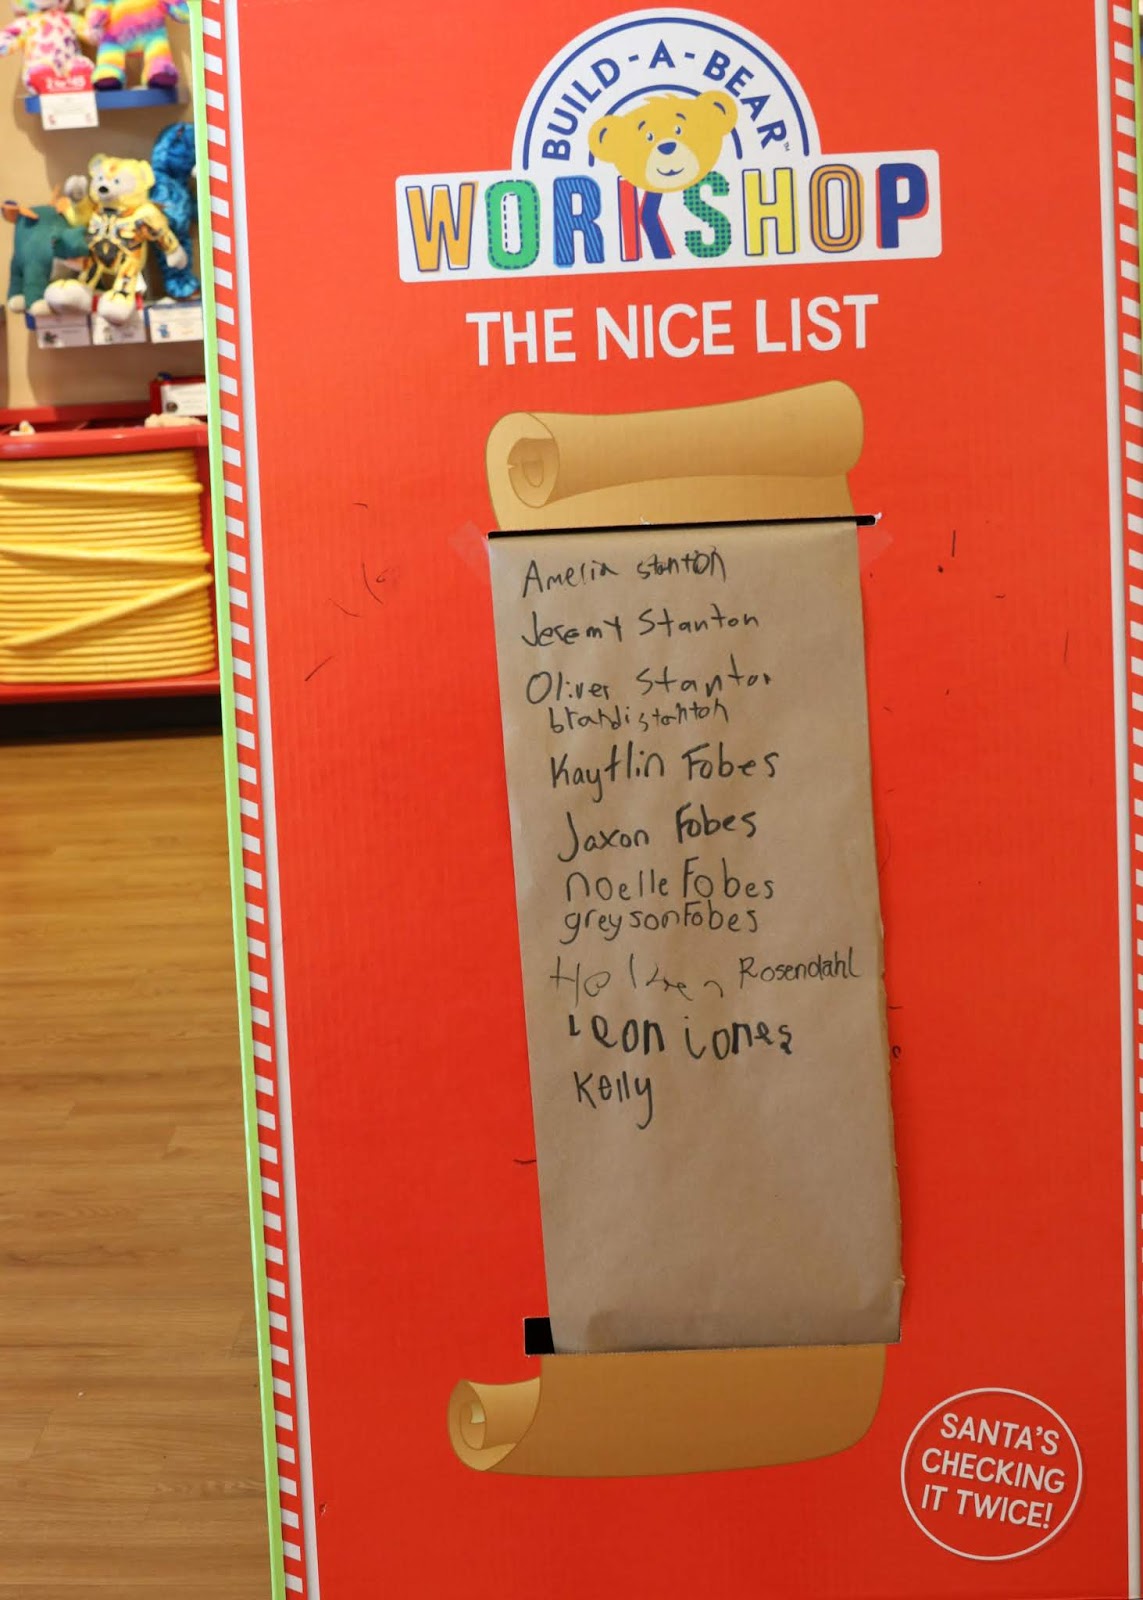 BUILD-A-BEAR
WORKSHOP
THE NICE LIST
Amelia Stanton
Jeremy Stanton
Oliver Stanton
brandi stanton
Kaytlin Fobes
Jaxon Fobes
noelle Fobes
greyson Fobes
Rosendahl
Leon jones
Kelly
SANTA'S
CHECKING
IT TWICE!